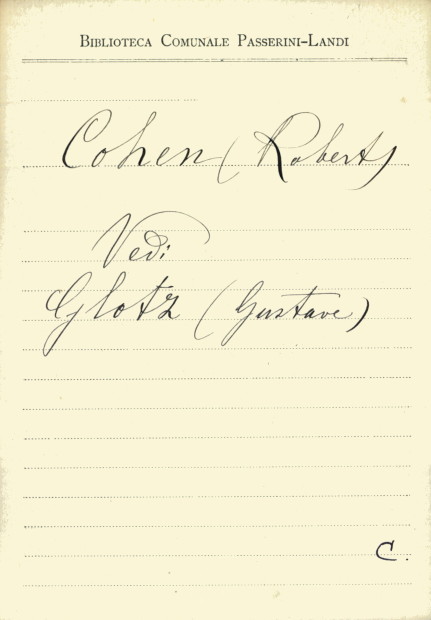 Biblioteca Comunale Passerini-Landi
Cohen (Robert)
Vedi
Glotz (Gustave)
C.